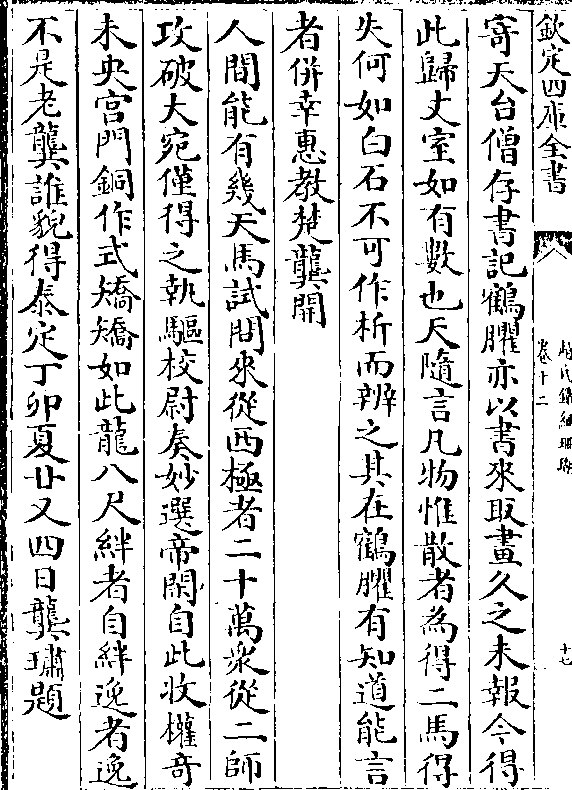 欽定四庫全書
趙氏鐵網珊瑚
卷十二
十七
寄天台僧存書記鶴臞亦以書來取畫久之未報今得
此歸丈室如有數也天隨言凡物惟散者為得二馬得
失何如白石不可作析而辨之其在鶴臞有知道能言
者併幸惠教楚龔開
人間能有幾天馬試問來從西極者二十萬衆從二師
攻破大宛僅得之執驅校尉奏妙選帝閑自此收權奇
未央宫門銅作式矯矯如此龍八尺絆者自絆逸者逸
不是老龔誰貌得泰定丁卯夏廿又四日龔璛題